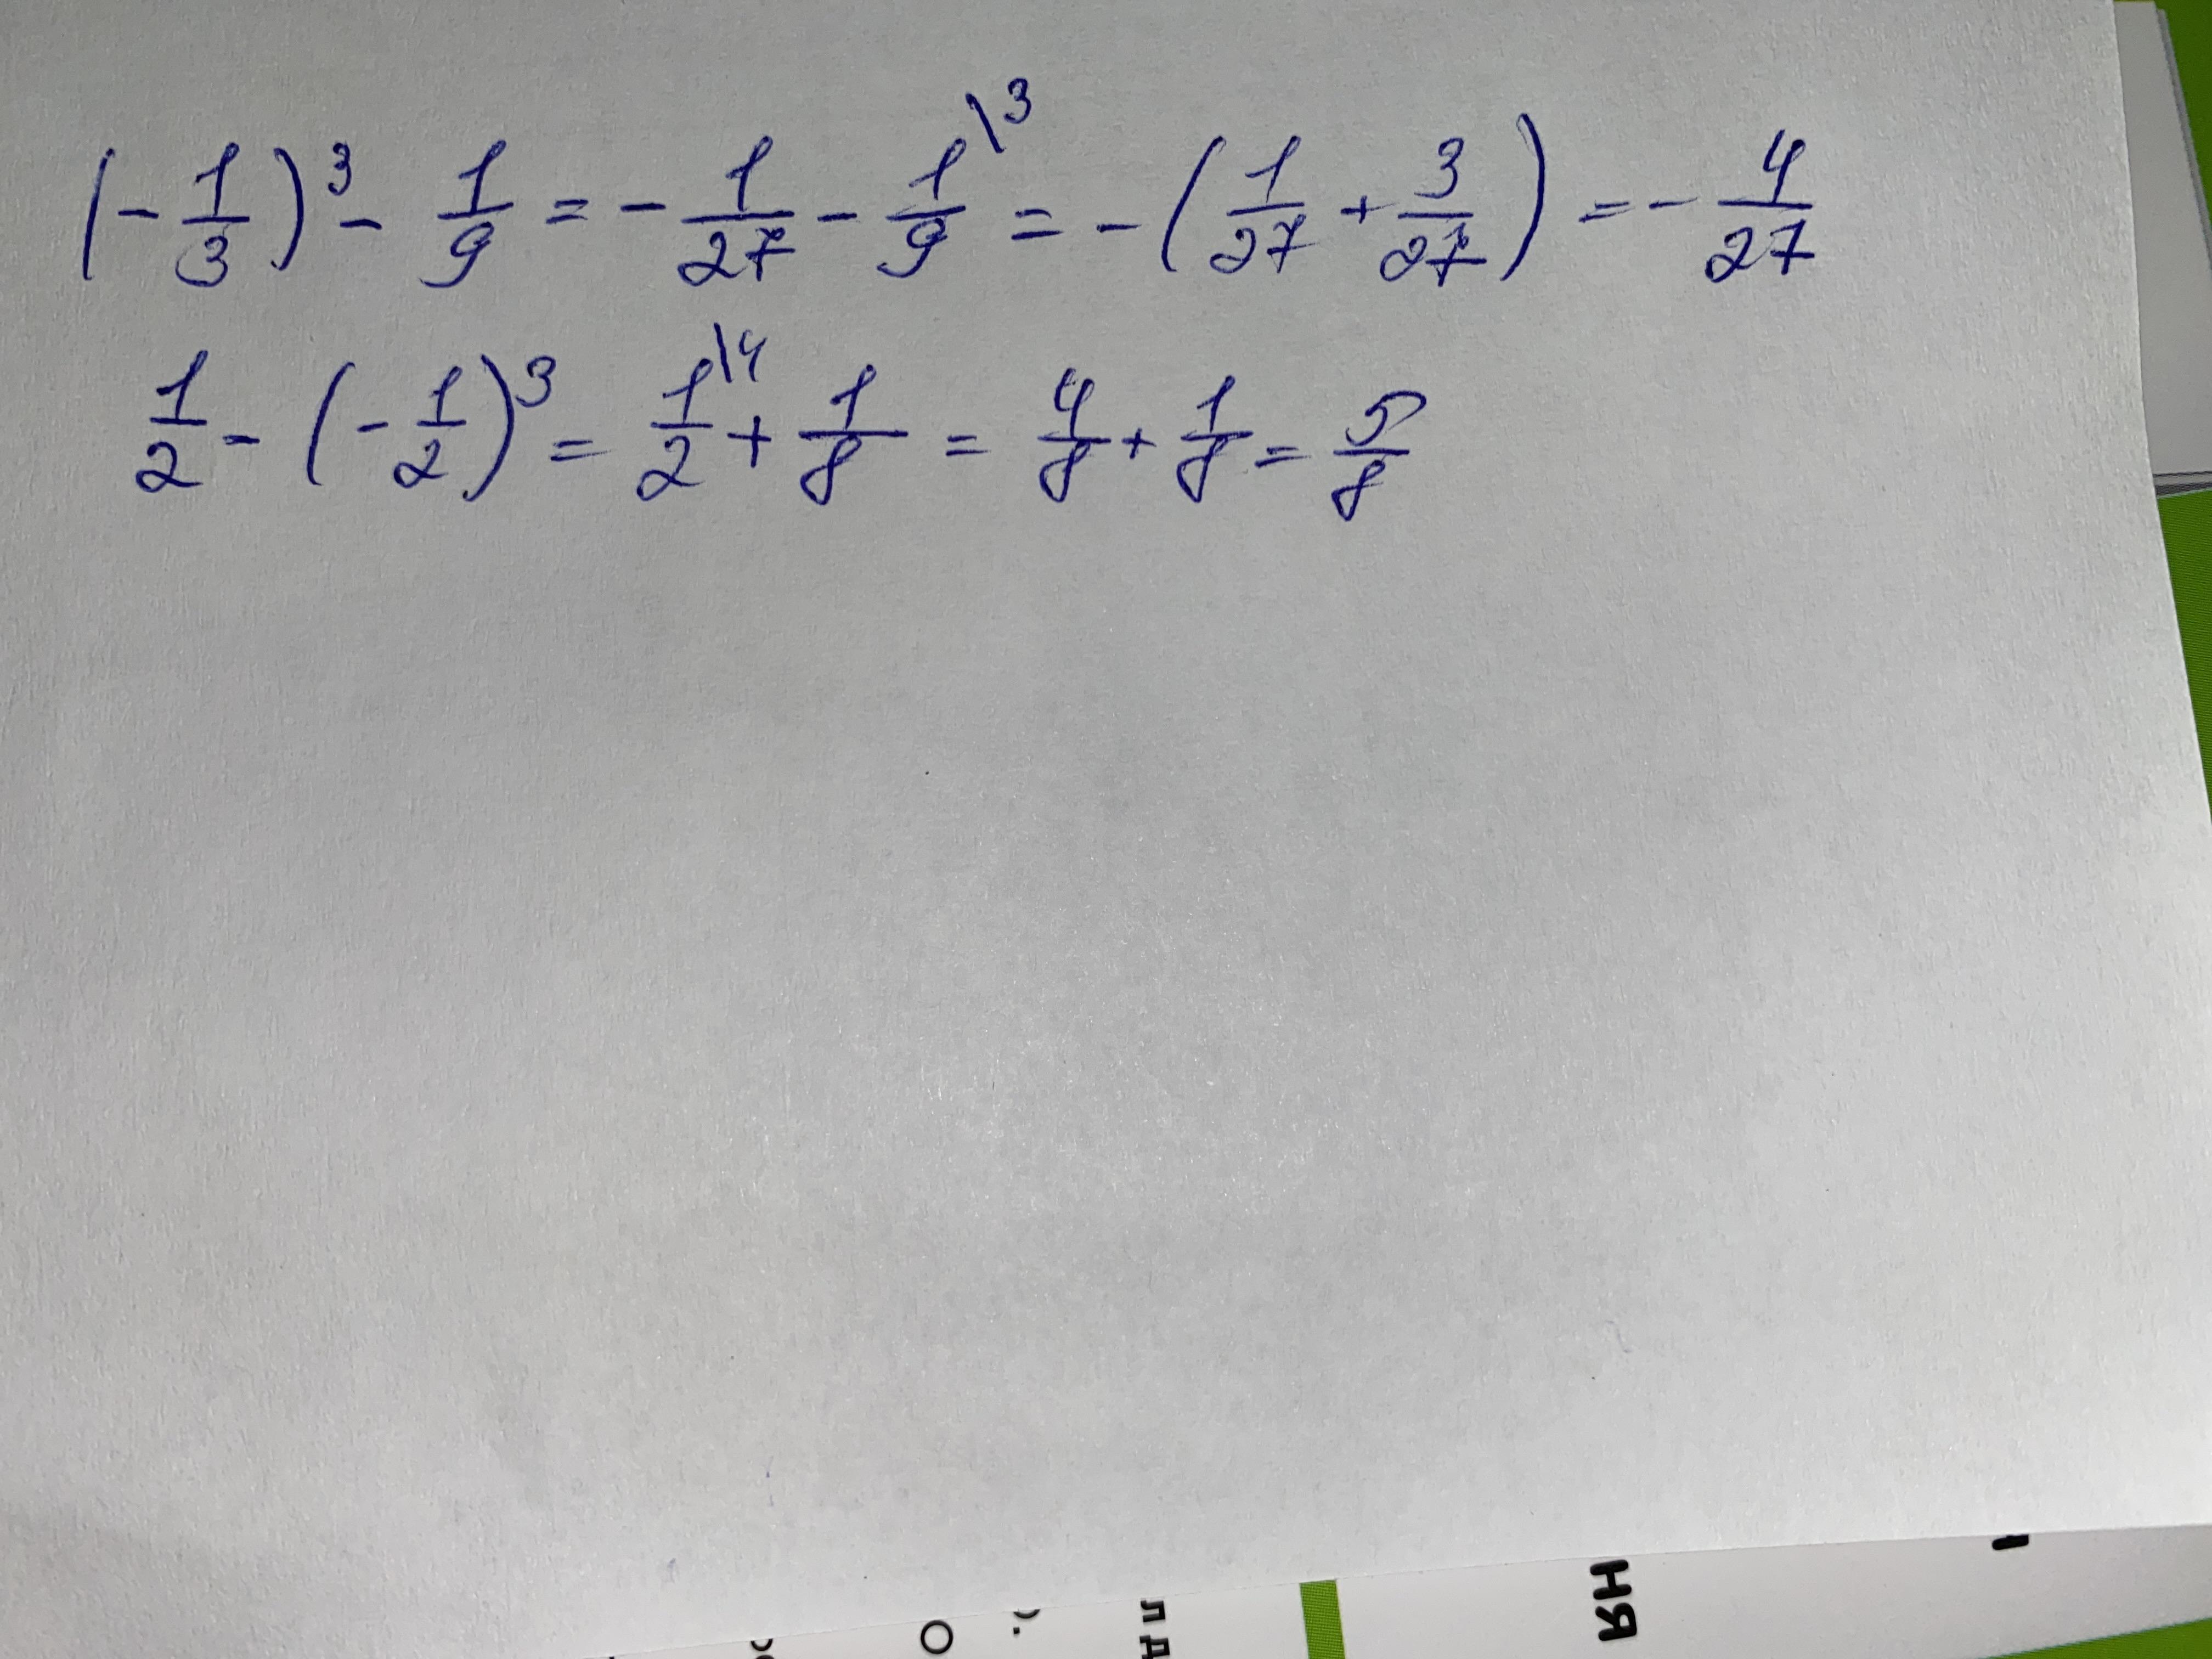 (-1/3)³ - 1/9 = - 1/27 - 1/9\³ = - (1/27 + 3/27) = - 4/27
1/2 - (-1/2)³ = 1/2\⁴ + 1/8 = 4/8 + 1/8 = 5/8
ня
л д